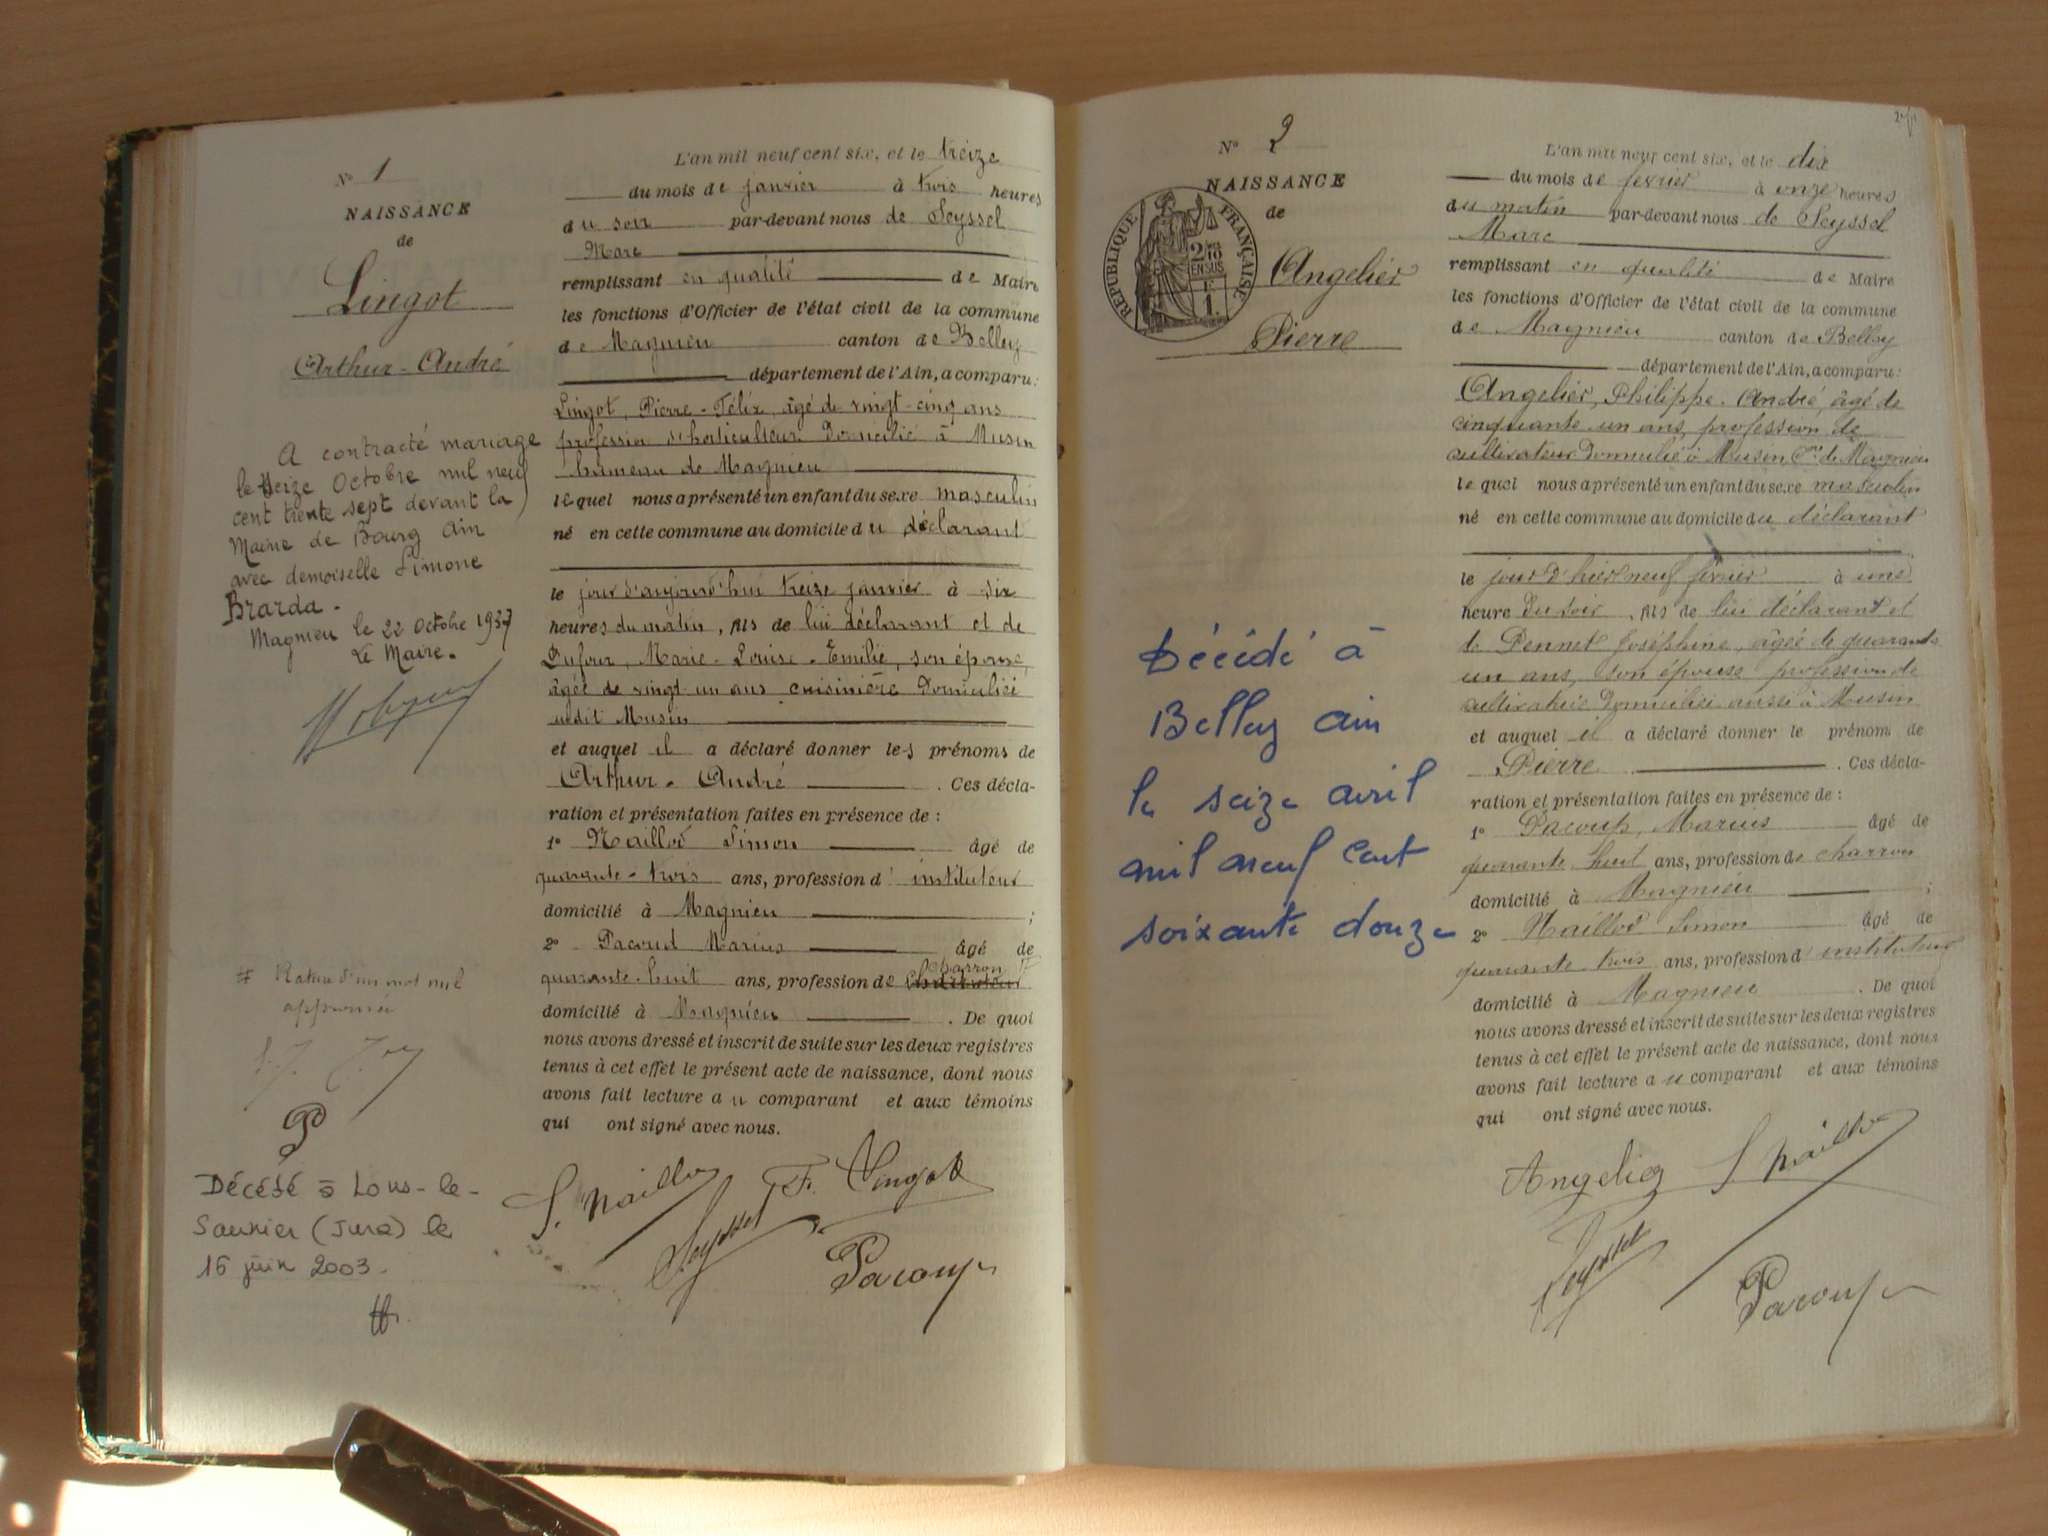 N° 1
NAISSANCE
de
Lingot
Arthur-André
A contracté mariage
le seize Octobre mil neuf
cent trente sept devant la
Mairie de Bourg Ain
avec demoiselle Simone
Brarda.
Magnieu le 22 Octobre 1937
Le Maire.
# Rature d'un mot nul
approuvée
Décédé à Lons-le-
Saunier (Jura) le
16 juin 2003.
L'an mil neuf cent six, et le treize
du mois de janvier à trois heures
du soir par-devant nous de Seyssel
Marc
remplissant en qualité de Maire
les fonctions d'Officier de l'état civil de la commune
de Magnieu canton de Belley
département de l'Ain, a comparu:
Lingot, Pierre-Félix, âgé de vingt-cinq ans
profession d'horticulteur domicilié à Musin
hameau de Magnieu
lequel nous a présenté un enfant du sexe masculin
né en cette commune au domicile du déclarant
le jour d'aujourd'hui treize janvier à six
heures du matin, fils de lui déclarant et de
Dufour, Marie-Louise-Emilie, son épouse,
âgée de vingt un ans cuisinière domiciliée
audit Musin
et auquel il a déclaré donner les prénoms de
Arthur-André. Ces décla-
ration et présentation faites en présence de :
1° Maillod Simon âgé de
quarante-trois ans, profession d'instituteur
domicilié à Magnieu ;
2° Pacoud Marius âgé de
charron #
quarante-huit ans, profession de
domicilié à Magnieu. De quoi
nous avons dressé et inscrit de suite sur les deux registres
tenus à cet effet le présent acte de naissance, dont nous
avons fait lecture au comparant et aux témoins
qui ont signé avec nous.
S. Maillod F. Lingot
Seyssel
Pacoup
N° 2
NAISSANCE
de
RÉPUBLIQUE FRANÇAISE
2/10 EN SUS
F 1
Angelier
Pierre
Décédé à
Belley ain
le seize avril
mil neuf cent
soixante douze
L'an mil neuf cent six, et le dix
du mois de février à onze heures
du matin par-devant nous de Seyssel
Marc
remplissant en qualité de Maire
les fonctions d'Officier de l'état civil de la commune
de Magnieu canton de Belley
département de l'Ain, a comparu:
Angelier, Philippe-André, âgé de
cinquante-un ans, profession de
cultivateur domicilié à Musin, Cne de Magnieu
lequel nous a présenté un enfant du sexe masculin
né en cette commune au domicile du déclarant
le jour d'hier neuf février à une
heure du soir, fils de lui déclarant et
de Pennet Joséphine, âgée de quarante
un ans, son épouse profession de
cultivatrice domiciliée aussi à Musin
et auquel il a déclaré donner le prénom de
Pierre. Ces décla-
ration et présentation faites en présence de :
1° Pacoup, Marius âgé de
quarante huit ans, profession de charron
domicilié à Magnieu ;
2° Maillod Simon âgé de
quarante-trois ans, profession d'instituteur
domicilié à Magnieu. De quoi
nous avons dressé et inscrit de suite sur les deux registres
tenus à cet effet le présent acte de naissance, dont nous
avons fait lecture au comparant et aux témoins
qui ont signé avec nous.
Angelier S Maillod
Seyssel
Pacoup